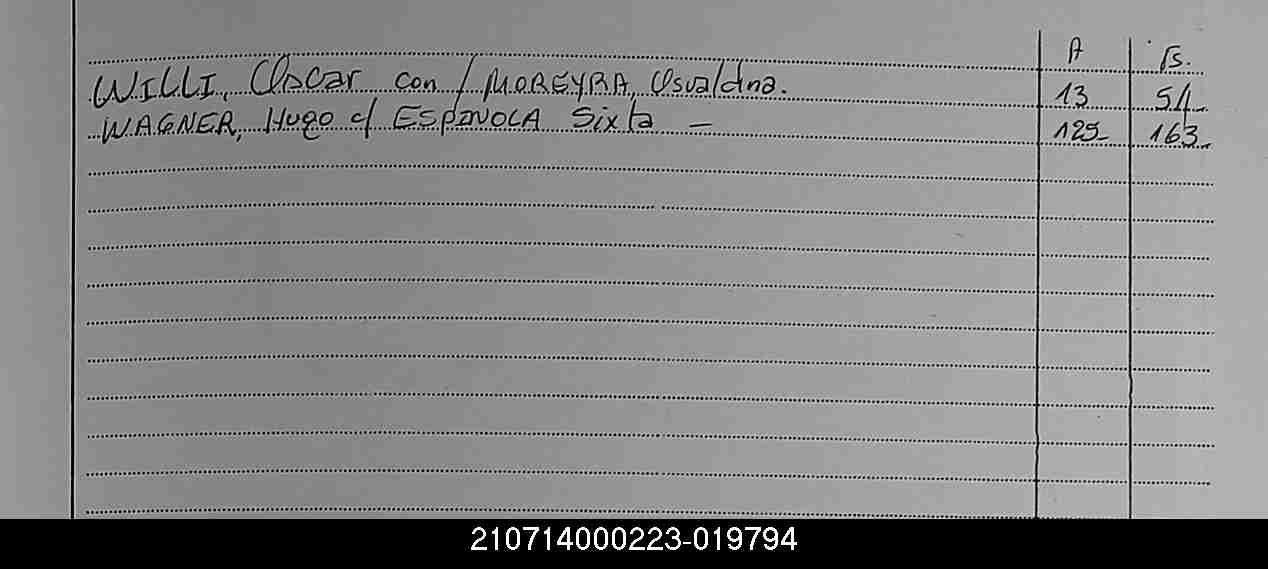 A Fs.
WILLI, Oscar con / MOREYRA, Osvaldina. 13 54
WAGNER, Hugo c/ ESPINOLA Sixta — 125 163
210714000223-019794